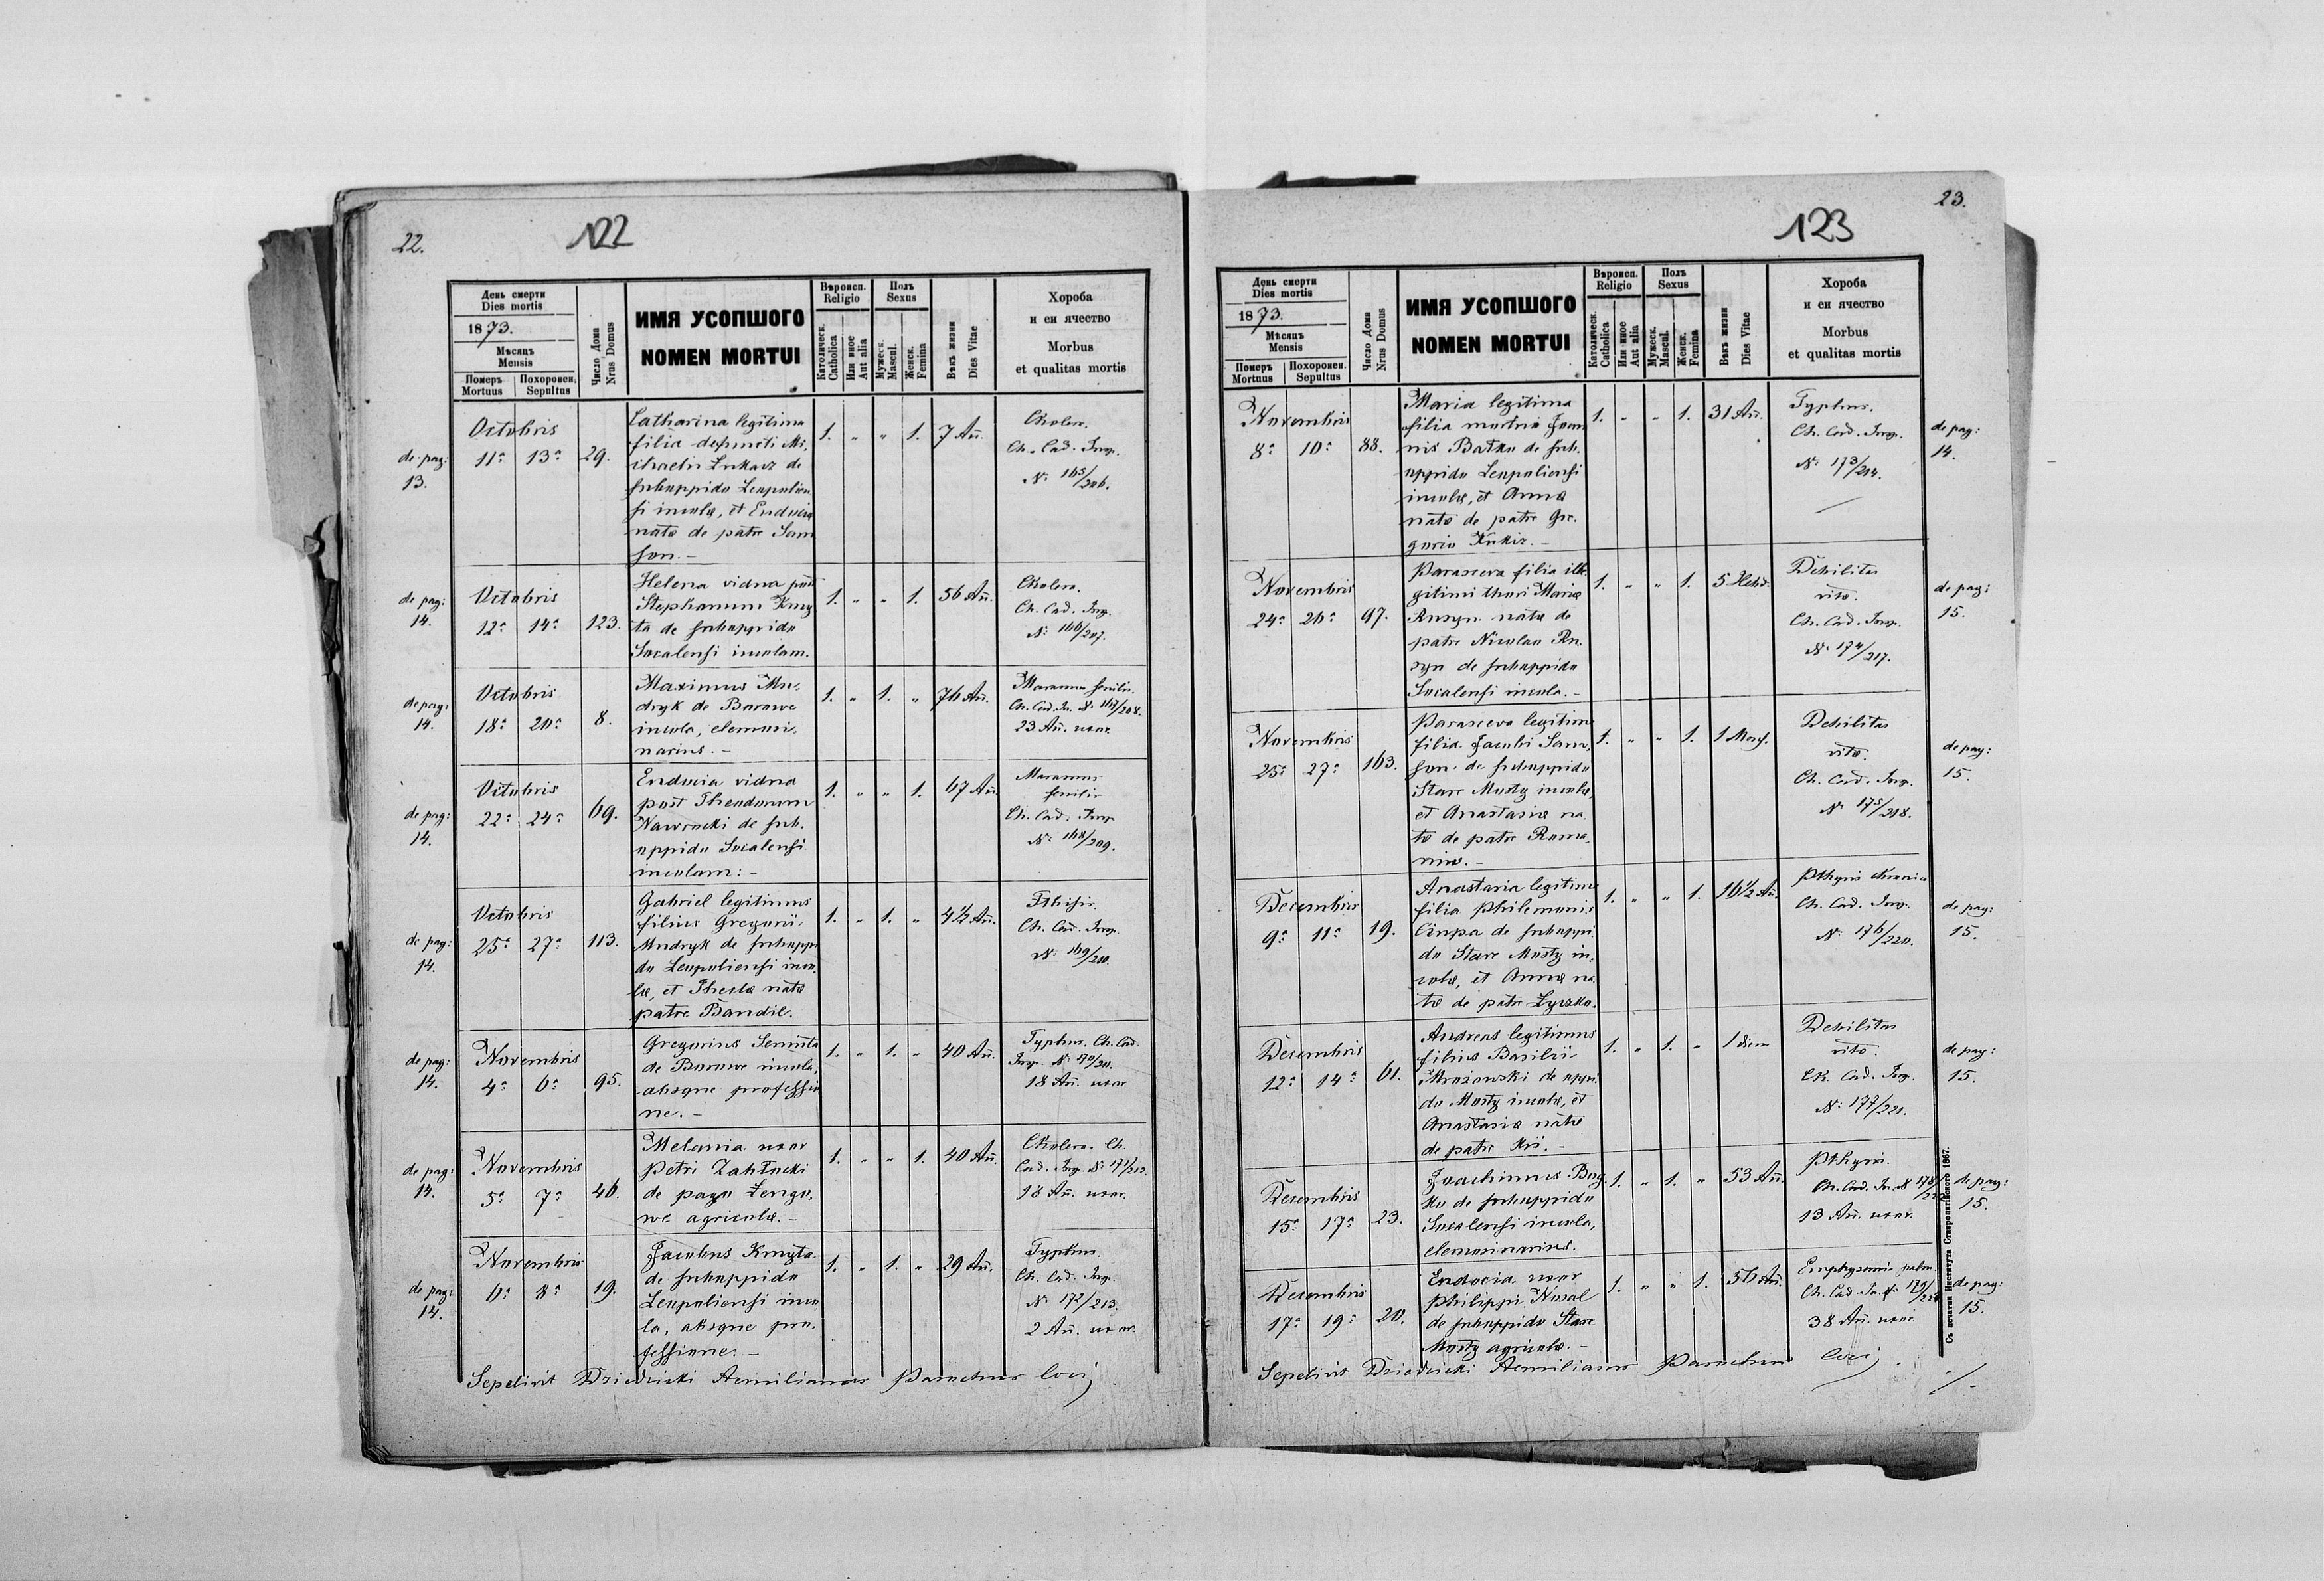 22.
122
День смерти
Dies mortis
1873.
Мѣсяцъ
Mensis
Померъ
Mortuus
Похоронен.
Sepultus
Число Дома
Nrus Domus
ИМЯ УСОПШОГО
NOMEN MORTUI
Вѣроисп.
Religio
Католическ.
Catholica
Или иное
Aut alia
Полъ
Sexus
Мужеск.
Mascul.
Женск.
Femina
Вѣкъ жизни
Dies Vitae
Хороба
и еи ячество
Morbus
et qualitas mortis
de pag: 13.
Octobris
11a 13a 29.
Catharina legitima
filia defuncti Mi,
chaelis Lukasz de
subuppido Leopolien
si incolæ, et Eudocia
nata de patre Sam
son. -
1. " " 1. 7 Añ.
Cholera.
Ch. Cad. Insp.
No 165/206.
de pag: 14.
Octobris
12a 14a 123.
Helena vidua post
Stephanum Kmy
ta de subuppido
Socalensi incolam.
1. " " 1. 56 Añ.
Cholera.
Ch. Cad. Insp.
No 166/207.
de pag: 14.
Octobris
18a 20a 8.
Maximus Mu,
dryk de Borowe
incola, elemosi,
narius. -
1. " 1. " 76 Añ.
Marasmus senilis.
Ch. Cad. In. No 167/208.
23 Añ. uxor.
de pag: 14.
Octobris
22a 24a 69.
Eudocia vidua
post Theodorum
Nawrocki de sub.
oppido Socalensi
incolam: -
1. " " 1. 67 Añ.
Marasmus
senilis
Ch. Cad. Insp.
No 168/209.
de pag: 14.
Octobris
25a 27a 113.
Gabriel legitimus
filius Gregorii
Mudryk de subuppi
do Leopoliensi inco
læ, et Thecla nata
patre Bandil.
1. " 1. " 4½ Añ.
Pthisis.
Ch. Cad. Insp.
No 169/210.
de pag: 14.
Novembris
4a 6a 95.
Gregorius Semuta
de Borowe incola,
absque professio
ne. -
1. " 1. " 40 Añ.
Typhus. Ch. Cad.
Insp. No 170/211.
18 Añ. uxor.
de pag: 14.
Novembris
5a 7a 46.
Melania uxor
Petri Zabłocki
de pago
we agricolæ. -
1. " " 1. 40 Añ.
Cholera. Ch.
Cad. Insp. No 171/212.
18 Añ. uxor.
de pag: 14.
Novembris
6a 8a 19.
Jacobus Kmyta
de subuppido
Leopoliensi inco
la, absque pro,
fessione. -
1. " 1. " 29 Añ.
Typhus.
Ch. Cad. Insp.
No 172/213.
2 Añ. uxor.
Sepelivit Dziedzicki Aemilianus Parochus loci
23.
123
День смерти
Dies mortis
1873.
Мѣсяцъ
Mensis
Померъ
Mortuus
Похоронен.
Sepultus
Число Дома
Nrus Domus
ИМЯ УСОПШОГО
NOMEN MORTUI
Вѣроисп.
Religio
Католическ.
Catholica
Или иное
Aut alia
Полъ
Sexus
Мужеск.
Mascul.
Женск.
Femina
Вѣкъ жизни
Dies Vitae
Хороба
и еи ячество
Morbus
et qualitas mortis
Novembris
8a 10a 88.
Maria legitima
filia Joan
nis Bałko de sub.
uppido Leopoliensi
incolæ, et Anna
nata de patre Gre.
gorio Kukiz. -
1. " " 1. 31 Añ.
Typhus.
Ch. Cad. Insp.
No 173/214.
de pag: 14.
Novembris
24a 26a 97.
Parasceva filia ille
gitimi thori Mariæ
Rusyn nata de
patre Nicolao Ru
syn de subuppido
Socalensi incola. -
1. " " 1. 5 Hebd.
Debilitas
vitæ.
Ch. Cad. Insp.
No 174/217.
de pag: 15.
Novembris
25a 27a 163.
Parasceva legitima
filia Jacobi Sam,
son de subuppido
Stare Mosty incolæ,
et Anastasia na
ta de patre Roma,
niw. -
1. " " 1. 1 Mens.
Debilitas
vitæ.
Ch. Cad. Insp.
No 175/218.
de pag: 15.
Decembris
9a 11a 19.
Anastasia legitima
filia Philemonis
Ciupa de subuppi
do Stare Mosty in,
colæ, et Anna na
ta de patre Łyszko.
1. " " 1. 16½ Añ.
Pthysis chronica
Ch. Cad. Insp.
No 176/220.
de pag: 15.
Decembris
12a 14a 61.
Andreas legitimus
filius Basilii
Mrozowski de oppi
do Mosty incolæ, et
Anastasia nata
de patre Kii. -
1. " 1. " 1 diem
Debilitas
vitæ.
Ch. Cad. Insp.
No 177/221.
de pag: 15.
Decembris
15a 17a 23.
Joachimus
ko de subuppido
Socalensi incola,
elemosinarius.
1. " 1. " 53 Añ.
Pthysis.
Ch. Cad. In. No 178/
13 Añ. uxor.
de pag: 15.
Decembris
17a 19a 20.
Eudocia uxor
Philippi Nosal
de subuppido Stare
Mosty agricolæ. -
1. " " 1. 56 Añ.
Emphysema pulm.
Ch. Cad. In. No 179/
38 Añ. uxor.
de pag: 15.
Sepelivit Dziedzicki Aemilianus Parochus loci
Съ печатни Института Ставропигійского 1867.